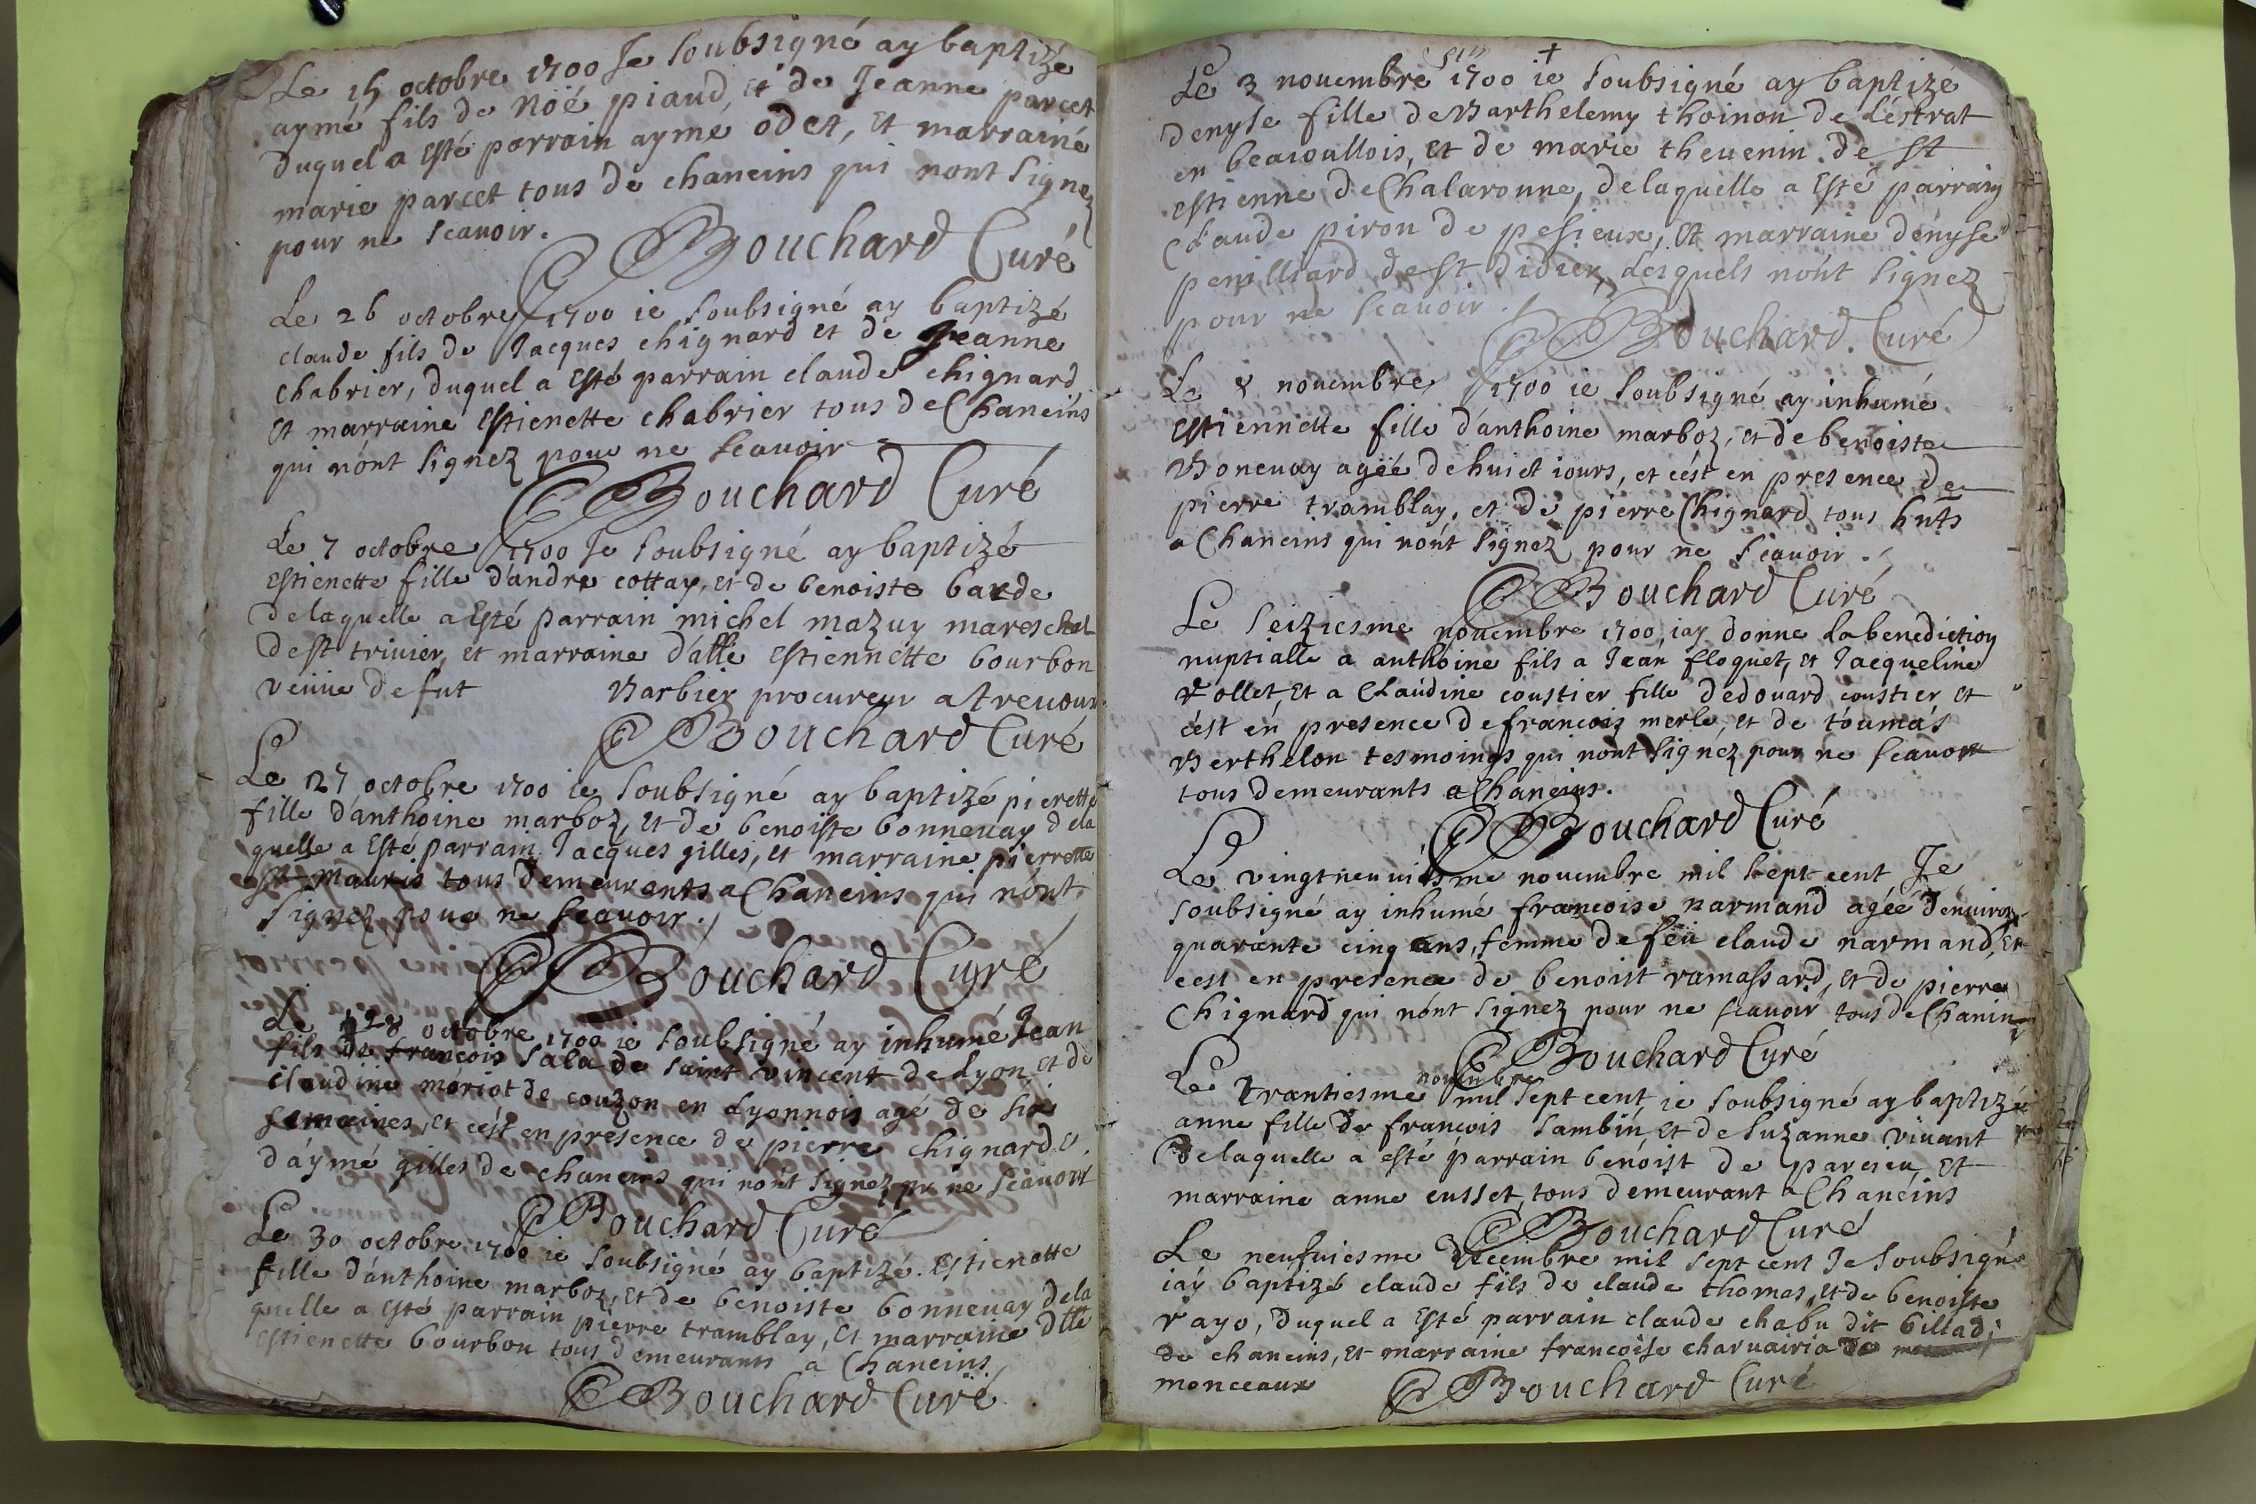 Le 15 octobre 1700 Je soubsigné ay baptizé
aymé fils de Noé piaud, et de Jeanne parcet
duquel a esté parrain aymé odet, et marrainé
marie parcet tous de chaneins qui nont signez
pour ne scauoir.
Bouchard Curé
Le 26 octobre 1700 ie soubsigné ay baptizé
claude fils de Jacques chignard et de Jeanne
chabrier, duquel a esté parrain claude chignard
et marraine estienette chabrier tous de Chaneins
qui nont signez pour ne scauoir
Bouchard Curé
Le 7 octobre 1700 Je soubsigné ay baptizé
estienette fille d'andre cottay, et de benoiste barde
delaquelle a esté parrain michel mazuy mareschal
de st triuier, et marraine dalle estiennette bourbon
veuue defut barbier procureur a treuoux
Bouchard Curé
Le 27 octobre 1700 ie soubsigné ay baptizé pierette
fille d'anthoine marboz, et de benoiste bonneuay dela
quelle a esté parrain Jacques gilles, et marraine pierrette
st mauris tous demeurents a Chaneins qui nónt
signez pour ne scauoir.
Bouchard Curé
Le 28 octobre 1700 ie soubsigné ay inhumé Jean
fils de francois sala de saint vincent de Lyon, et de
claudine moriot de couzon en Lyonnois agé de six
semaines, et cést en presence de pierre chignard et
d'aymé gilles de chaneins qui nónt signez pr ne scauoir
Bouchard Curé
Le 30 octobre 1700 ie soubsigné ay baptizé. Estienette
fille d'anthoine marboz, et de benoiste bonneuay dela
quelle a esté parrain pierre tramblay, et marraine dlle
estienette bourbon tous demeurants a Chaneins
Bouchard Curé
Le 3 novembre 1700 ie soubsigné ay baptizé
denyse fille de Barthelemy thoinon de Léstrat
en beaioullois, et de marie theuenin de st
estienne de Chalaronne, delaquelle a esté parrain
Claude piron de pesieux, et marraine denyse
penilliard de st didier, Lesquels nónt signez
pour ne scauoir.
Bouchard Curé
Le 8 nouembre 1700 ie soubsigné ay inhumé
estiennette fille d'anthoine marboz, et de benoiste
Boneuay ageé de huict iours, et cést en presence de
pierre tramblay, et de pierre Chignard tous hnts
a Chaneins qui nónt signez pour ne scauoir.
Bouchard Curé
Le seiziesme nouembre 1700, iay donne la benediction
nuptialle a anthoine fils a Jean floquet, et Jacqueline
vollet, et a Claudine coustier fille dedouard coustier et
cést en presence de francois merle, et de toumas
Berthelon tesmoings qui nont signez pour ne scauoir
tous demeurants a Chaneins.
Bouchard Curé
Le vingtneuuiesme nouembre mil sept cent Je
soubsigné ay inhumé francoise narmand agéé denuiron
quarante cinq ans, femme de feu claude narmand, et
cest en presence de benoist ramassard, et de pierre
Chignard qui nónt signez pour ne scauoir tous de Chanins
Bouchard Curé
Le trantiesme nouembre mil sept cent ie soubsigné ay baptizé
anne fille de francois sambin, et de suzanne viuant
delaquelle a esté parrain benoist de parcieu et
marraine anne cusset, tous demeurant a Chanéins
Bouchard Curé
Le neufuiesme Decembre mil sept cent Je soubsigné
iay baptizé claude fils de claude thomas, et de benoiste
rayo, duquel a esté parrain claude chabu dit billad
de chaneins, et marraine francoise charuairia de
monceaux
Bouchard Curé